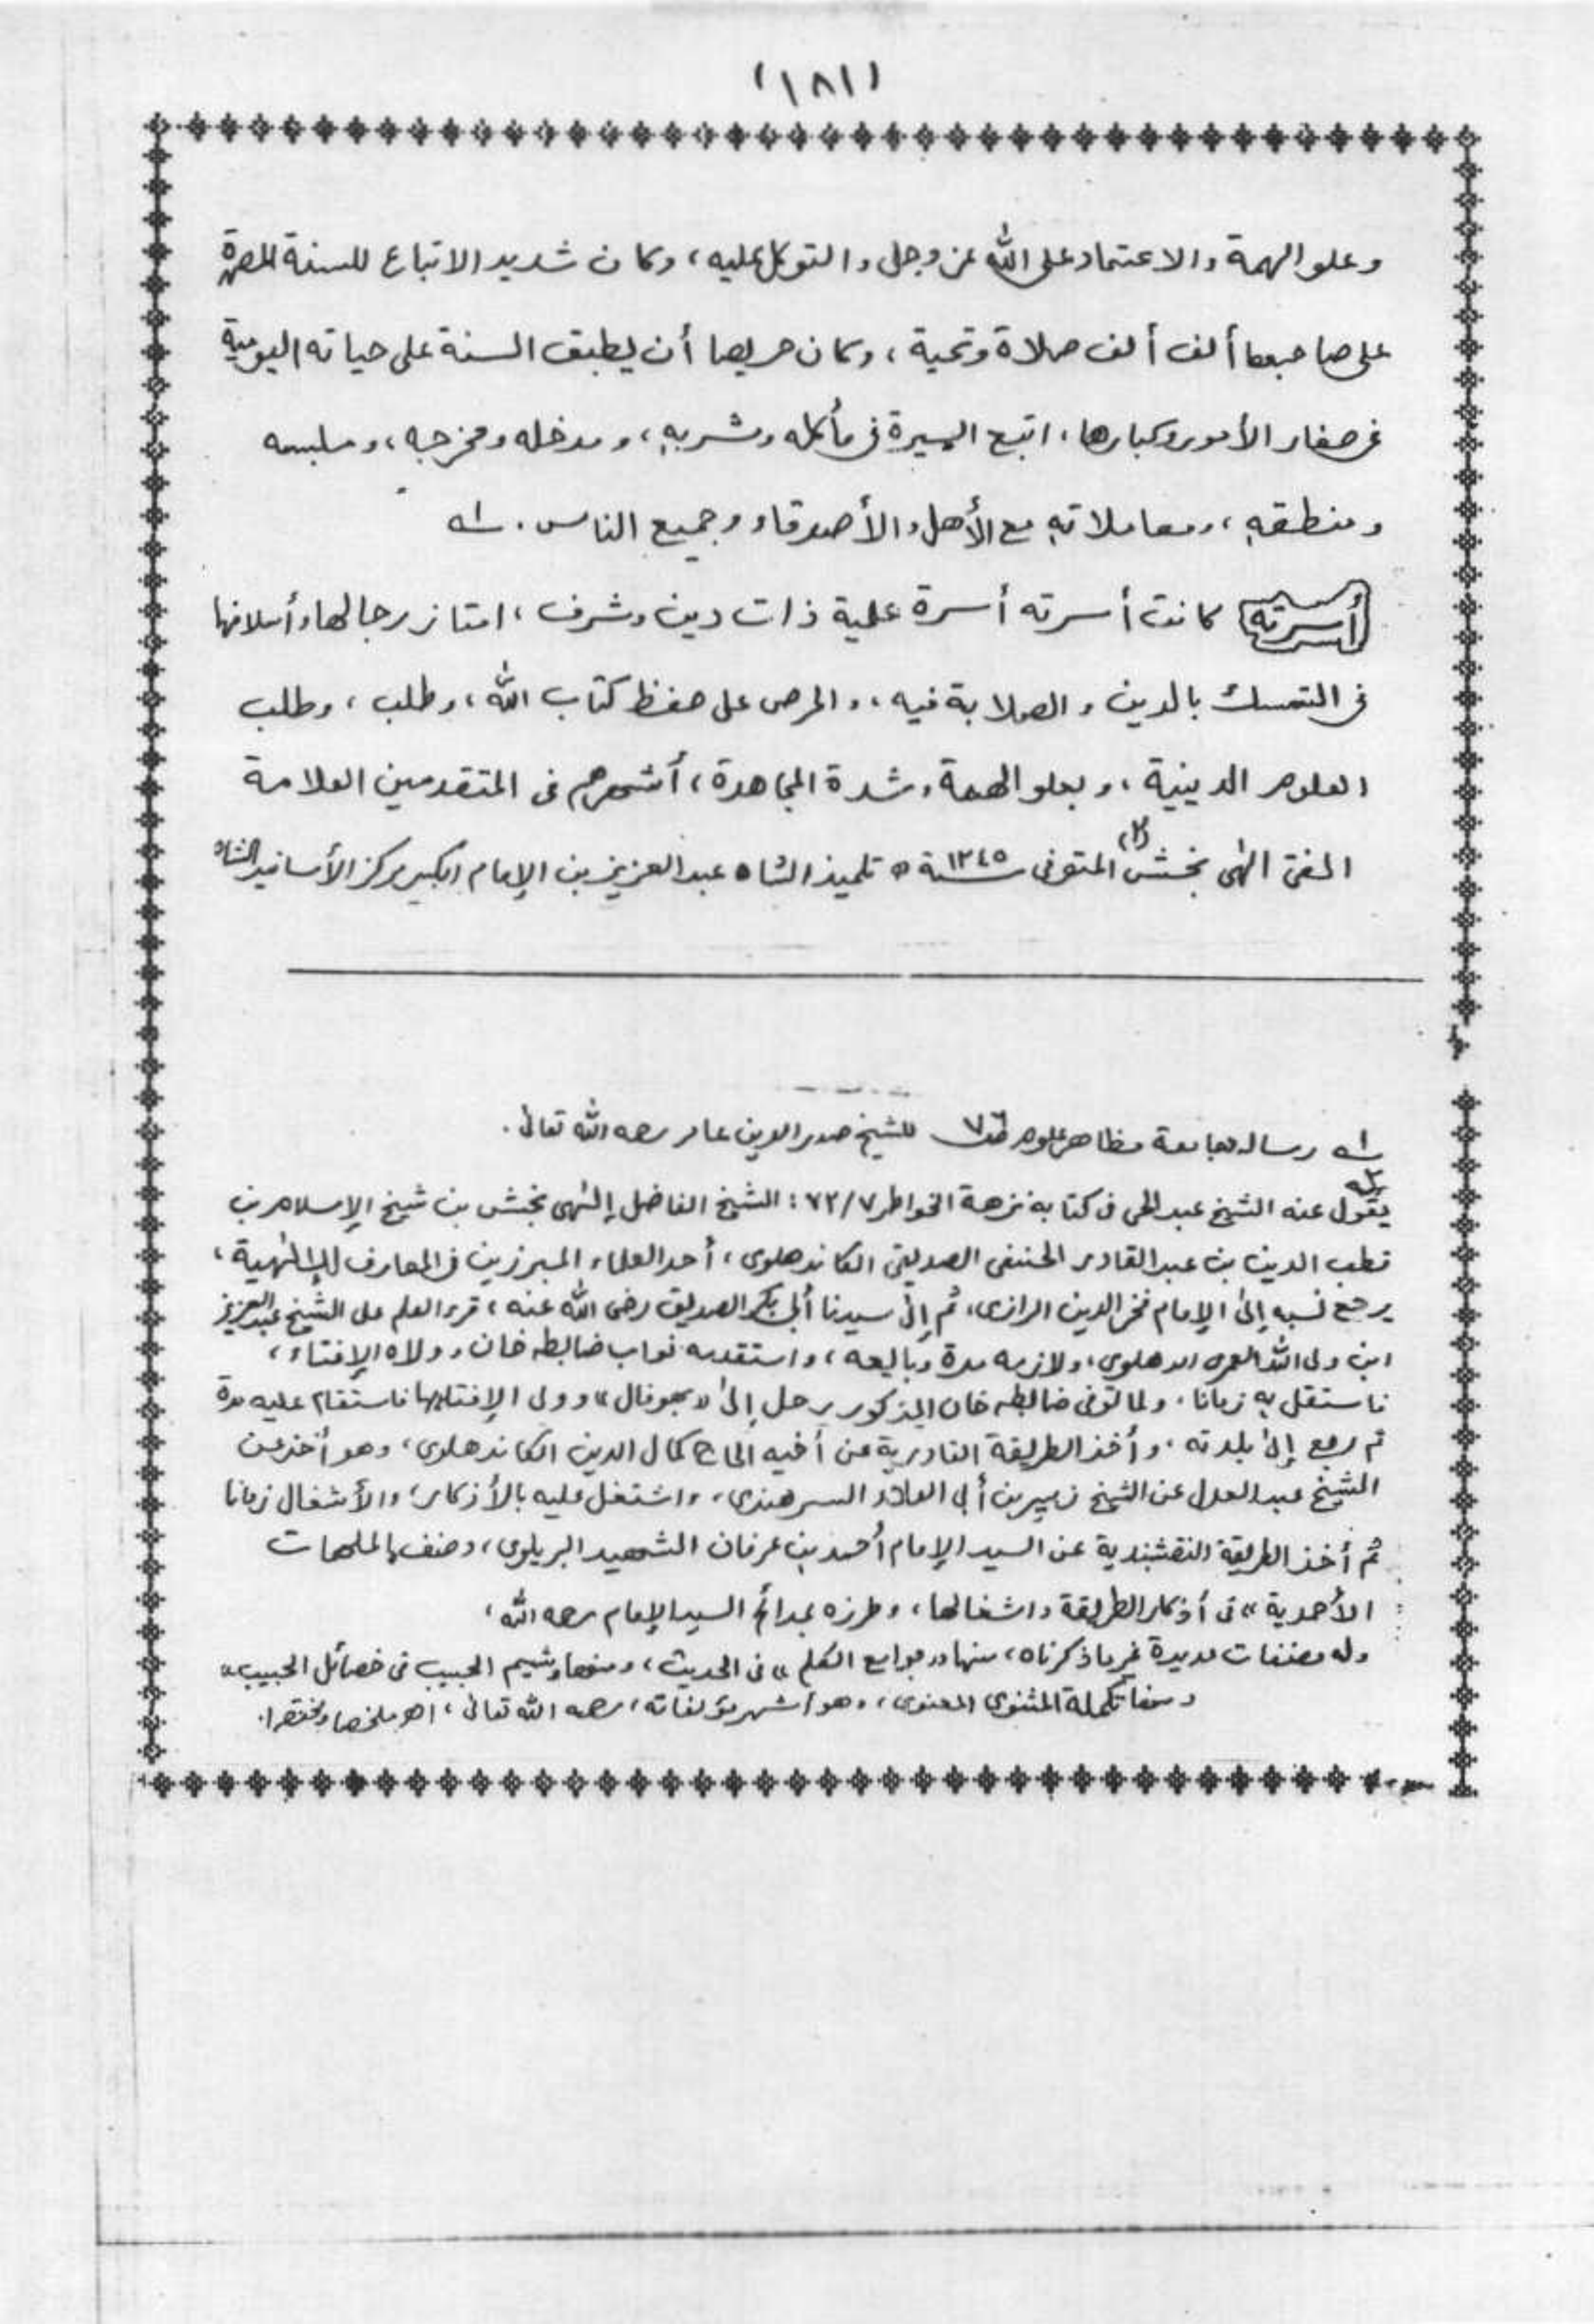 (١٨١)
وعلو الهمة والاعتماد على الله عز وجل والتوكل عليه، وكان شديد الاتباع للسنة المطهرة
على صاحبها ألف ألف صلاة وتحية، وكان حريصا أن يطبق السنة على حياته اليومية
في صغار الأمور وكبارها، اتبع السيرة في مأكله ومشربه، ومدخله ومخرجه، وملبسه
ومنطقه، ومعاملاته مع الأهل والأصدقاء وجميع الناس. ١ـه
أسرته كانت أسرته أسرة علية ذات دين وشرف، امتاز رجالها وأسلافها
في التمسك بالدين والصلابة فيه، والحرص على حفظ كتاب الله، وطلب، وطلب
العلوم الدينية، وبعلو الهمة وشدة المجاهدة، أشهرهم في المتقدمين العلامة
المفتي الٰهى بخش (٢) المتوفى سنة ١٢٤٥ ه تلميذ الشاه عبد العزيز بن الإمام الكبير مركز الأسانيد الشاه
١ـه رساله جامعة مظاهر علوم ص٧ للشيخ صدر الدين عامر رحمه الله تعالى.
٢ـه يقول عنه الشيخ عبد الحى فى كتابه نزهة الخواطر ٧/٧٢: الشيخ الفاضل إلٰهى بخش بن شيخ الإسلام بن
قطب الدين بن عبد القادر الحنفى الصديقى الكاندهلوى، أحد العلماء المبرزين في المعارف الإلٰهية،
يرجع نسبه إلى الإمام فخر الدين الرازى، ثم إلى سيدنا أبى بكر الصديق رضى الله عنه، قرء العلم على الشيخ عبد العزيز
ابن ولى الله العمرى الدهلوى، ولازمه مدة وبايعه، واستقدمه نواب ضابطه خان وولاه الإفتاء،
فاستقل به زمانا، ولما توفى ضابطه خان المذكور رحل إلى «بهوفال» وولى الإفتاء بها فاستقام عليه مدة
ثم رجع إلى بلدته، وأخذ الطريقة القادرية عن أخيه الحاج كمال الدين الكاندهلوى، وهو أخذ عن
الشيخ عبد العدل عن الشيخ زبير بن أبى العلاء السرهندى، واشتغل عليه بالأذكار، والأشغال زمانا
ثم أخذ الطريقة النقشبندية عن السيد الإمام أحمد بن عرفان الشهيد البريلوى، وصنف «الملهمات
الأحمدية» فى أذكار الطريقة واشغالها، وطرزه بمدائح السيد الإمام رحمه الله،
وله مصنفات عديدة غير ما ذكرناه، منها «جوامع الكلم» فى الحديث، ومنها «شيم الحبيب فى خصائل الحبيب»
ومنها تكملة المثنوى المعنوى، وهو أشهر مؤلفاته، رحمه الله تعالى، اهـ ملخصا ومختصرا.